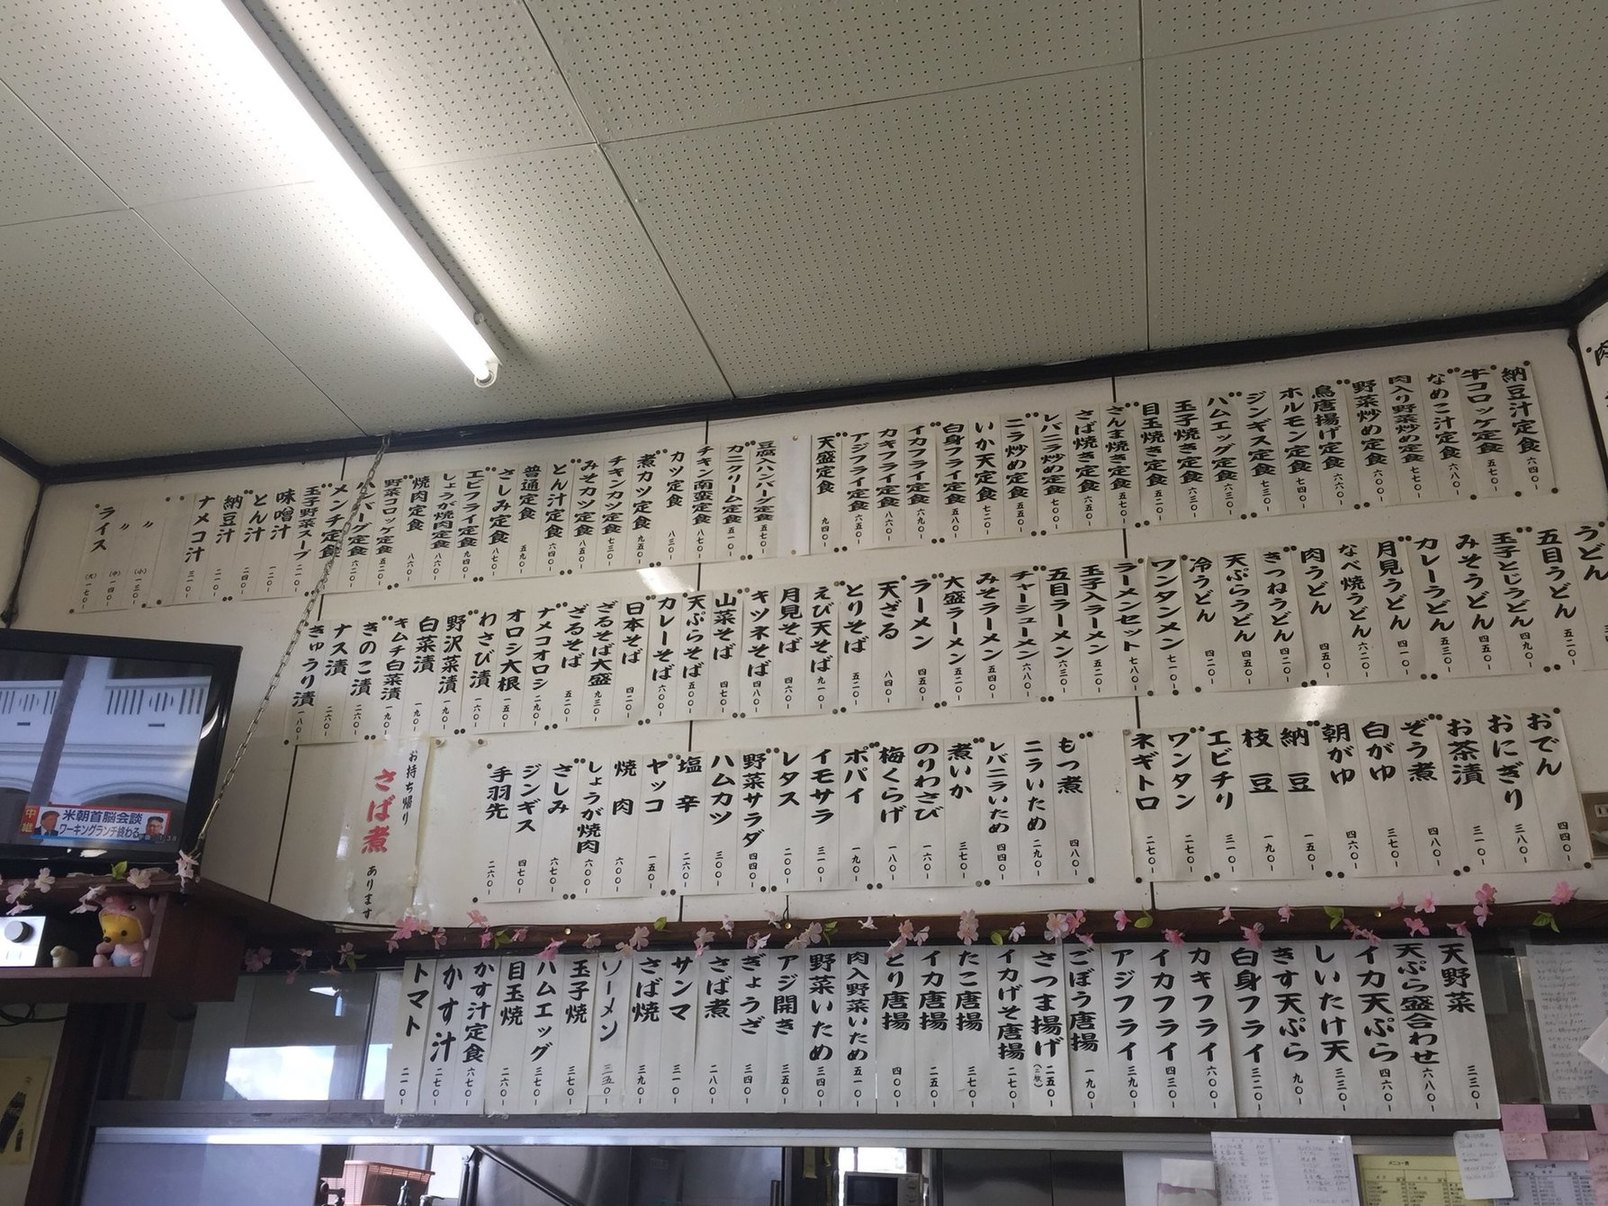 納豆汁定食 六四〇-
牛コロッケ定食 五七〇-
なめこ汁定食
肉入り野菜炒め定食 七七〇-
野菜炒め定食 六〇〇-
鳥唐揚げ定食
ホルモン定食 七四〇-
ジンギス定食 七三〇-
ハムエッグ定食 六三〇-
玉子焼き定食 六三〇-
目玉焼き定食 五二〇-
さんま焼き定食 五七〇-
さば焼き定食 六五〇-
レバニラ炒め定食
ニラ炒め定食 五五〇-
いか天定食 七二〇-
白身フライ定食 五八〇-
イカフライ定食 六九〇-
カキフライ定食 八六〇-
アジフライ定食 六五〇-
天盛定食 九四〇-
豆腐ハンバーグ定食 五七〇-
カニクリーム定食 五一〇-
チキン南蛮定食 八七〇-
カツ定食 八三〇-
煮カツ定食 九五〇-
チキンカツ定食 七三〇-
みそカツ定食 八五〇-
とん汁定食 六四〇-
普通定食 五九〇-
さしみ定食 八七〇-
エビフライ定食 九四〇-
しょうが焼肉定食 八六〇-
焼肉定食 八六〇-
野菜コロッケ定食 五二〇-
ハンバーグ定食 六二〇-
メンチ定食
玉子野菜スープ
味噌汁 一二〇-
とん汁 二四〇-
納豆汁 二一〇-
ナメコ汁 三一〇-
〃 (小) 一三〇-
〃 (中) 一四〇-
ライス (大) 一七〇-
うどん
五目うどん 五二〇-
玉子とじうどん 四九〇-
みそうどん 四五〇-
カレーうどん 五三〇-
月見うどん 四一〇-
なべ焼うどん 六二〇-
肉うどん 四五〇-
きつねうどん 四二〇-
天ぷらうどん 四五〇-
冷うどん 四二〇-
ワンタンメン 七一〇-
ラーメンセット 七八〇-
玉子入ラーメン 五二〇-
五目ラーメン 六三〇-
チャーシューメン 六八〇-
みそラーメン 五四〇-
大盛ラーメン 五二〇-
ラーメン 四五〇-
天ざる 八四〇-
とりそば 五二〇-
えび天そば 九一〇-
月見そば 四六〇-
キツネそば 四八〇-
山菜そば 四七〇-
天ぷらそば 五〇〇-
カレーそば 六〇〇-
日本そば 四二〇-
ざるそば大盛 九三〇-
ざるそば 五二〇-
ナメコオロシ 二九〇-
オロシ大根 一五〇-
わさび漬 一六〇-
野沢菜漬 一九〇-
白菜漬 一九〇-
キムチ白菜漬 一九〇-
きのこ漬 二六〇-
ナス漬 二六〇-
きゅうり漬 一八〇-
おでん 四四〇-
おにぎり 三八〇-
お茶漬 三一〇-
ぞう煮 四八〇-
白がゆ 三七〇-
朝がゆ 四六〇-
納豆 一五〇-
枝豆 一九〇-
エビチリ 三一〇-
ワンタン 二七〇-
ネギトロ 二七〇-
もつ煮 四八〇-
ニラいため 二九〇-
レバニラいため 四四〇-
煮いか 三七〇-
のりわさび 一六〇-
梅くらげ 一八〇-
ポパイ 一九〇-
イモサラ 三一〇-
レタス 二〇〇-
野菜サラダ 四四〇-
ハムカツ 三〇〇-
塩辛 二六〇-
ヤッコ 一五〇-
焼肉 六〇〇-
しょうが焼肉 六〇〇-
さしみ 六七〇-
ジンギス 四七〇-
手羽先 二六〇-
お持ち帰り
さば煮
あります
天野菜 三三〇-
天ぷら盛合わせ 六八〇-
イカ天ぷら 四六〇-
しいたけ天 三三〇-
きす天ぷら 九〇-
白身フライ 三二〇-
カキフライ 六〇〇-
イカフライ 四三〇-
アジフライ 三九〇-
ごぼう唐揚 一九〇-
さつま揚げ 二五〇-
イカげそ唐揚 二七〇-
たこ唐揚 三七〇-
イカ唐揚 二五〇-
とり唐揚 四〇〇-
肉入野菜いため 五一〇-
野菜いため 三四〇-
アジ開き 三五〇-
ぎょうざ 三四〇-
さば煮 二八〇-
サンマ 三一〇-
さば焼 三九〇-
ソーメン 三五〇-
玉子焼 三七〇-
ハムエッグ 三七〇-
目玉焼 二六〇-
かす汁定食 六七〇-
かす汁 二七〇-
トマト 二一〇-
中継
米朝首脳会談
ワーキングランチ終わる